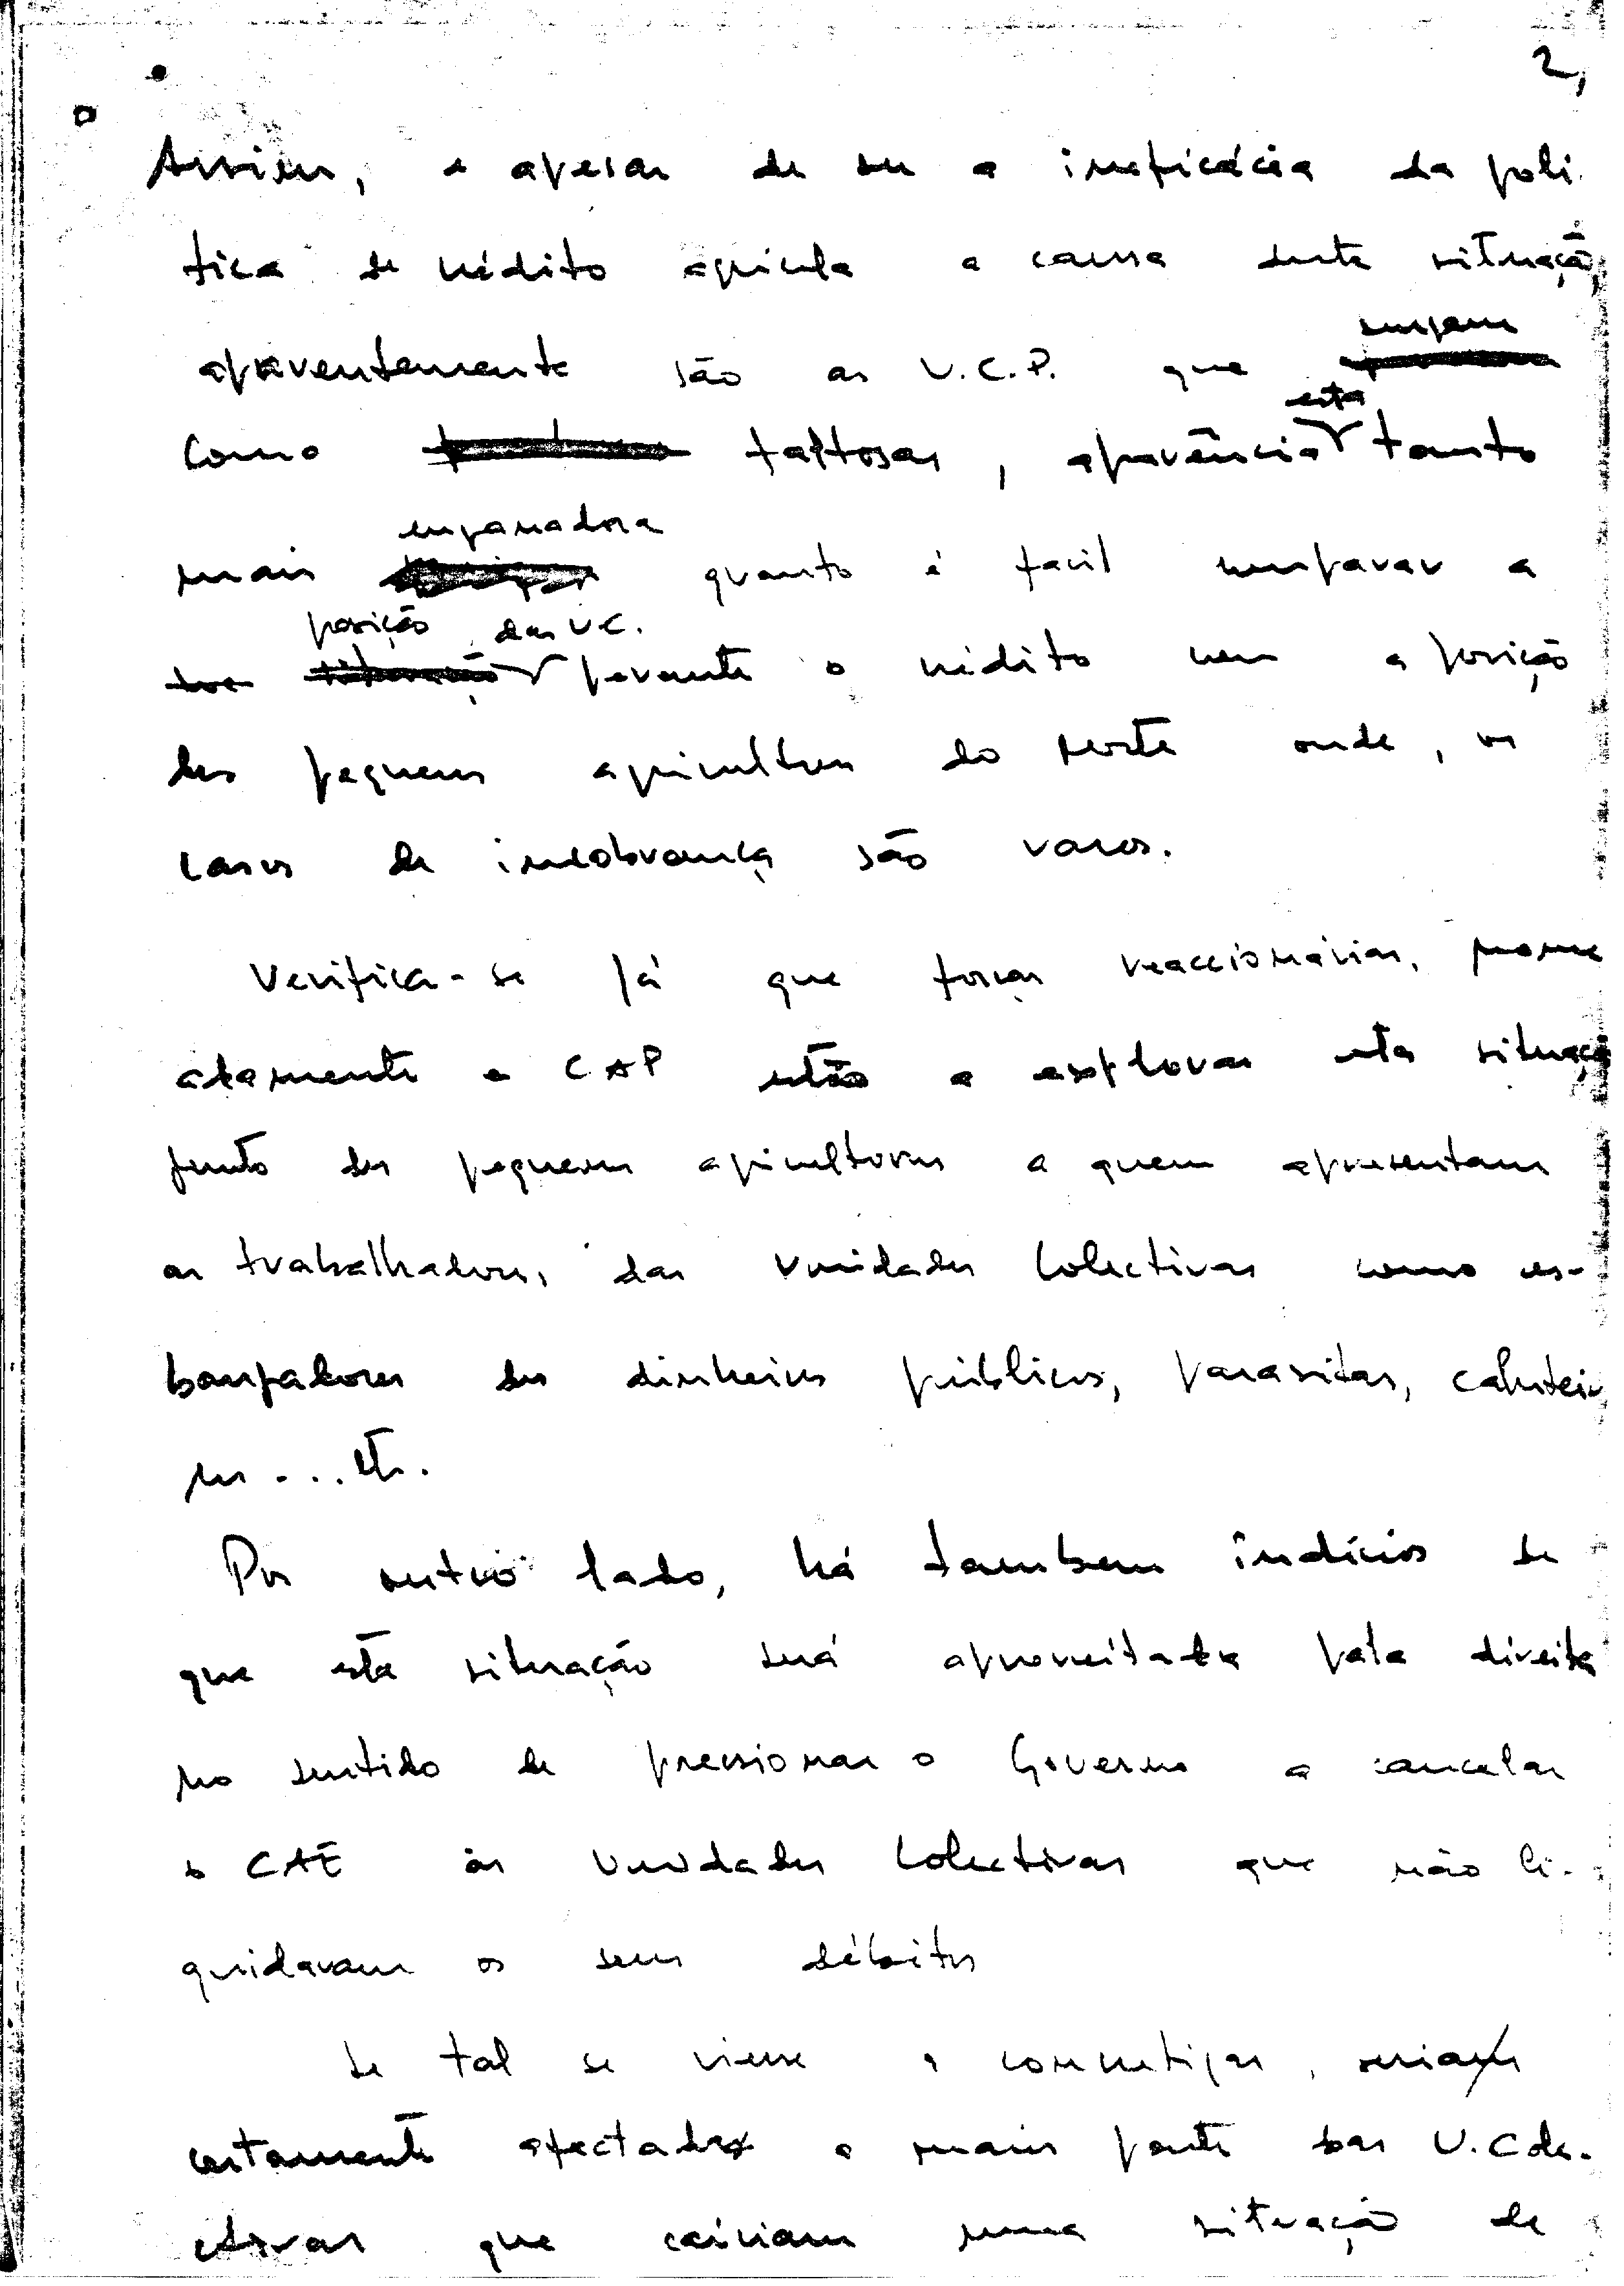 2,
Assim, e apesar de ser a ineficácia da poli
tica de crédito agricola a causa desta situação,
aparentemente são as U.C.P. que surgem
como faltosas, aparência esta tanto
mais enganadora quanto é facil comparar a
posição das UC. perante o crédito com a posição
dos pequenos agricultores do norte onde, os
casos de incobrança são raros.
Verifica-se já que forças reaccionárias, nome
adamente a CAP estão a explorar esta situação
junto dos pequenos agricultores a quem apresentam
os trabalhadores, das Unidades Colectivas como es-
banjadores dos dinheiros públicos, parasitas, calotei
ros ... etc.
Por outro lado, há tambem indícios de
que esta situação será aproveitada pela direita
no sentido de pressionar o Governo a cancelar
o CAE às Unidades Colectivas que não li-
quidaram os seus débitos
Se tal se viesse a concretizar, seria
certamente afectada a maior parte das U.Cole-
ctivas que cairiam numa situação de